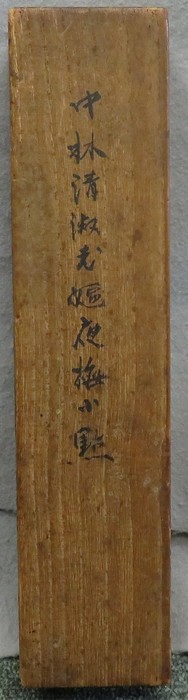 中林清淑老媼夜梅小點